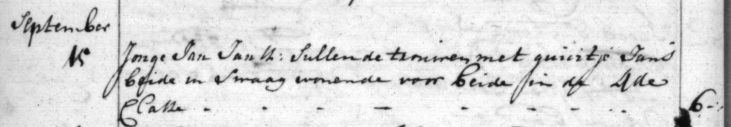 September
15 Jonge Jan Jansz: Sullende trouwen met guiertje Jans
beide in Swaag wonende voor beide in de 4de
Classe - - - - - - - 6--